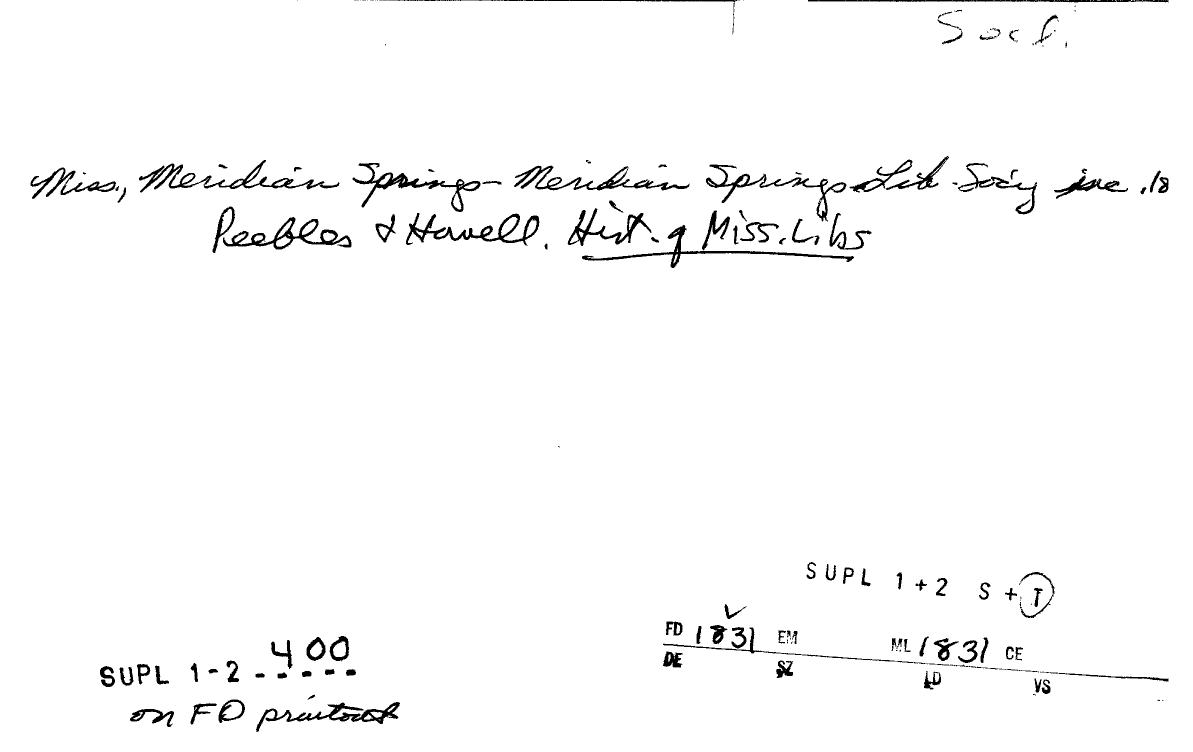 Socl.
Miss., Meridian Springs - Meridian Springs Lib. Soc'y inc. 18
Peebles & Howell. Hist. of Miss. Libs
SUPL 1+2 S+T
FD 1831 EM ML 1831 CE
DE SZ LD VS
SUPL 1-2 400
on FD printout